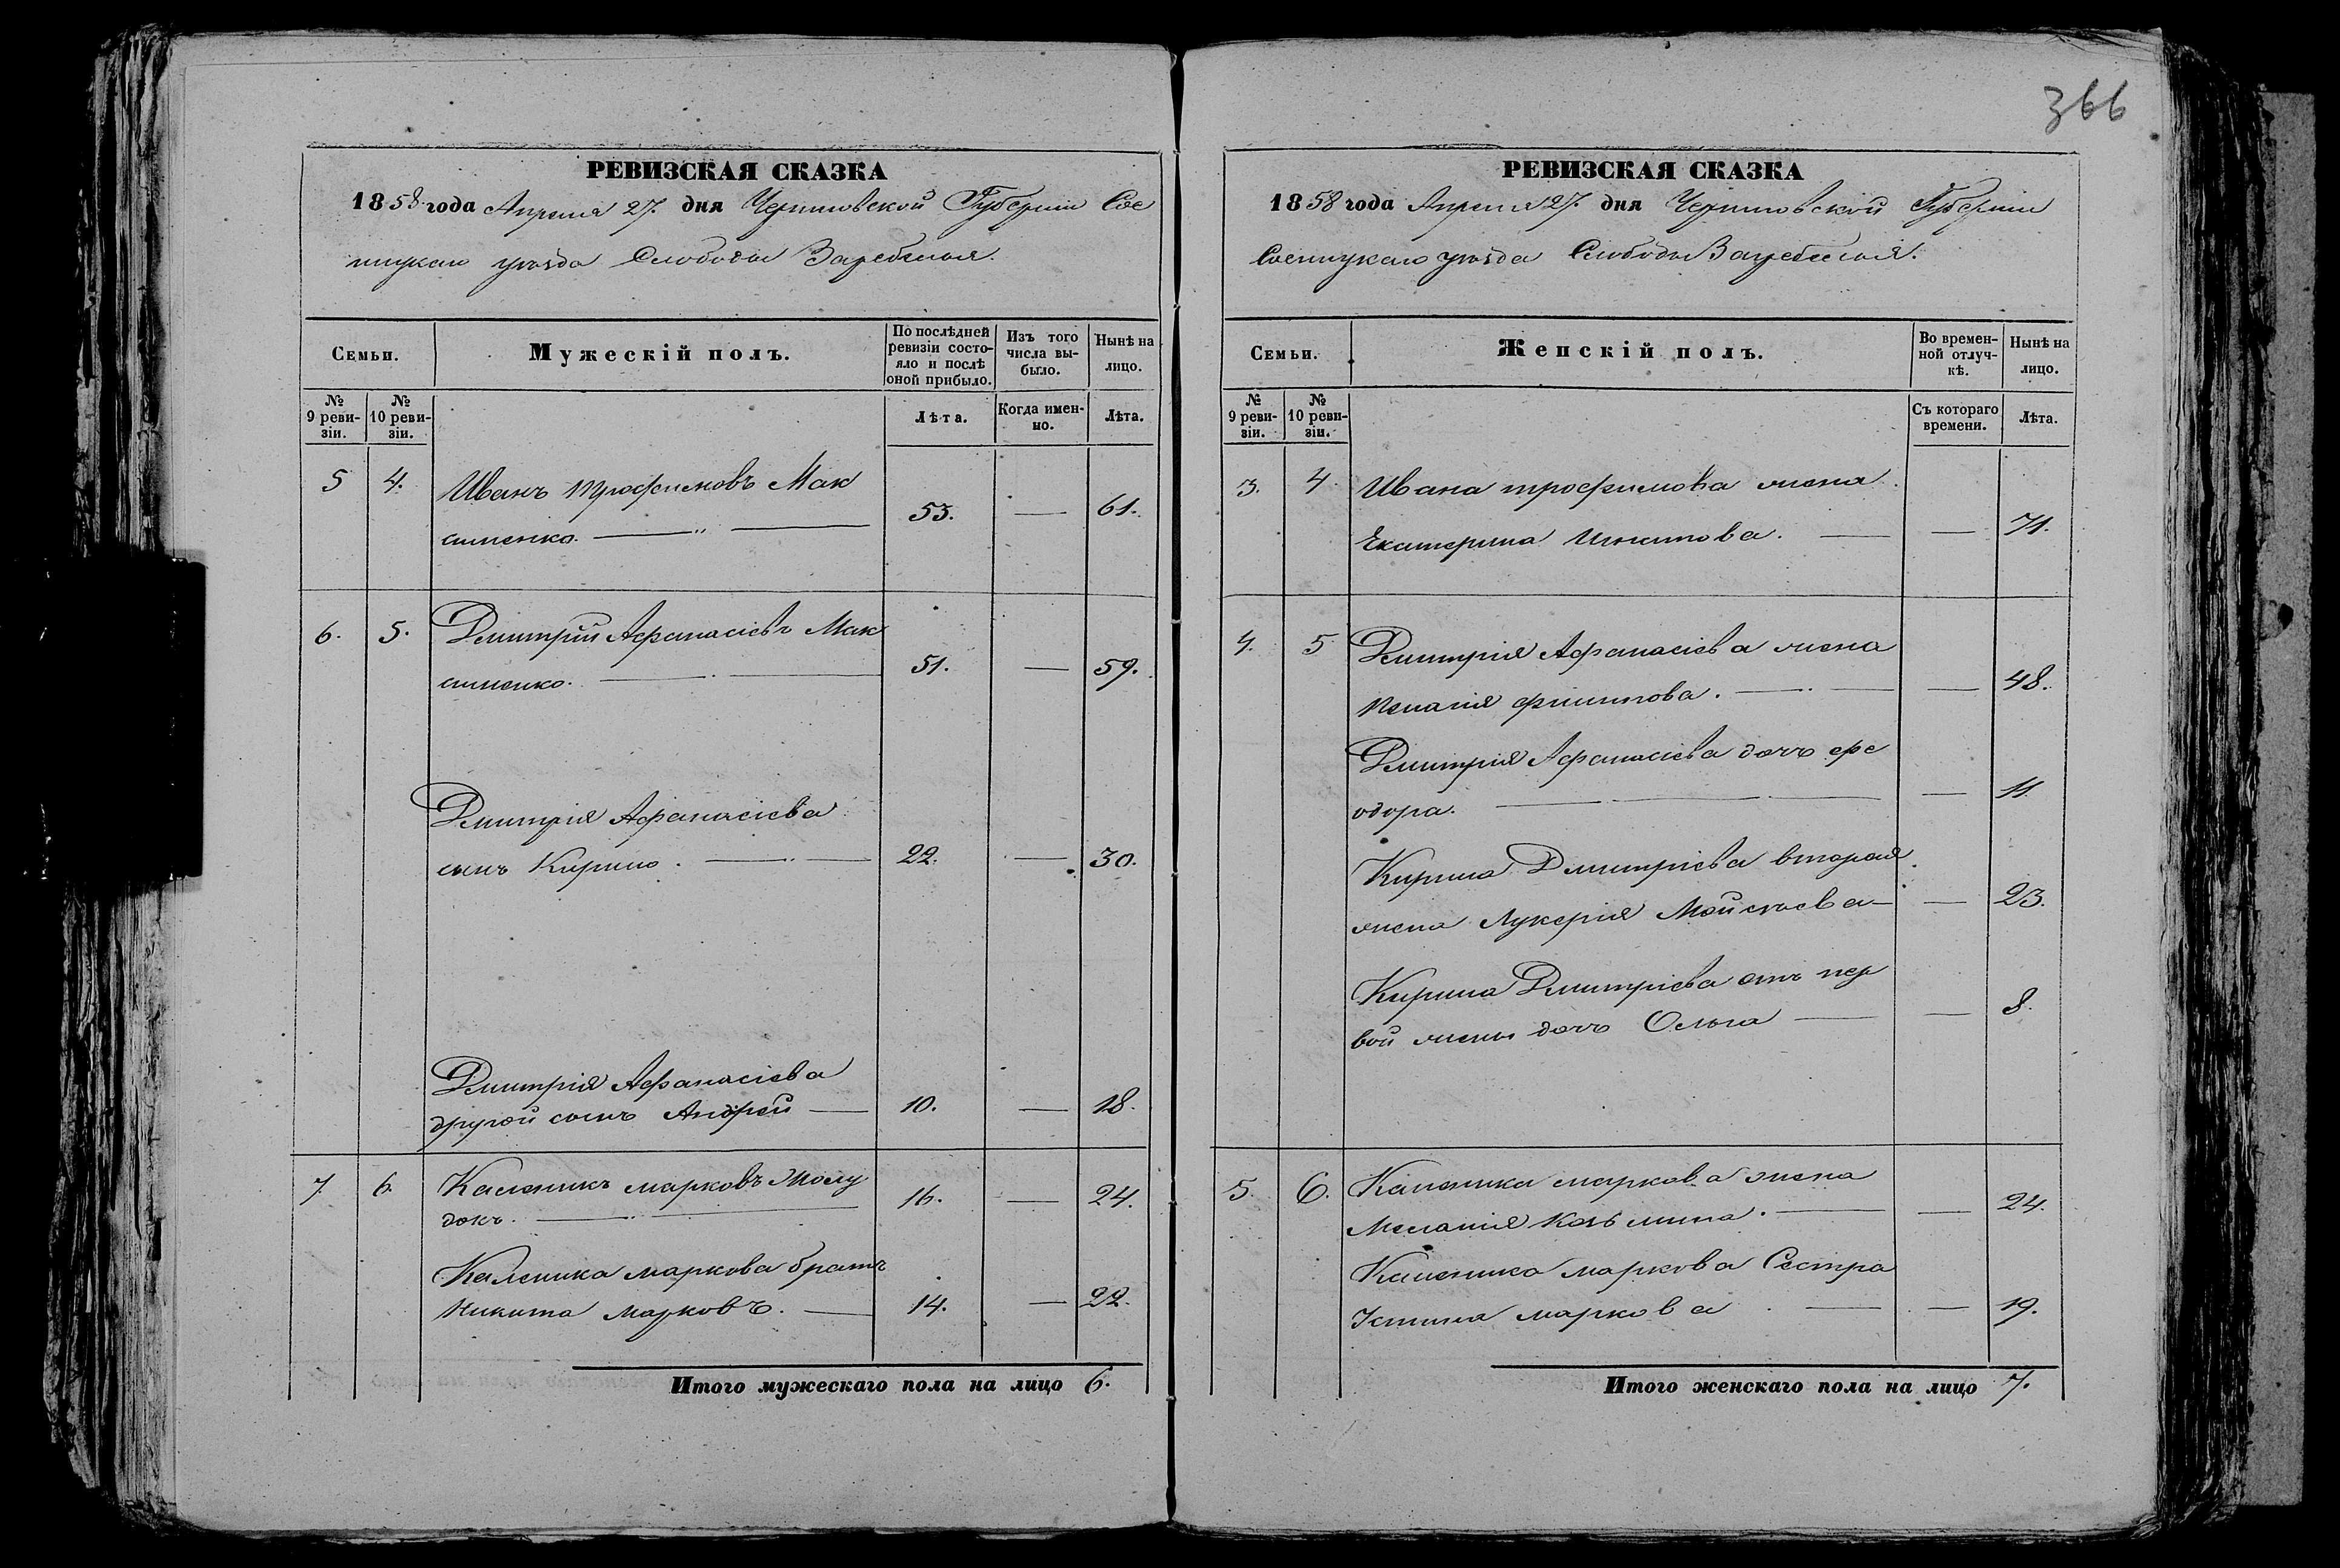 366
РЕВИЗСКАЯ СКАЗКА
1858 года Апреля 27. дня Черниговской Губерніи Сос
ницкаго уѣзда Слободы
Семьи.
Мужескій полъ.
По послѣдней
ревизіи состо-
яло и послѣ
оной прибыло.
Изъ того
числа вы-
было.
Нынѣ на
лицо.
№
9 реви-
зіи.
№
10 реви-
зіи.
Лѣта.
Когда имен-
но.
Лѣта.
5 4. Иванъ трофимовъ Мак
сименко. 53. — 61.
6. 5. Дмитрій Афанасіевъ Мак
сименко. 51. — 59.
Дмитрія Афанасіева
сынъ Кирило. 22. — 30.
Дмитрія Афанасіева
другой сынъ Андрей — 10. — 18.
7. 6. Каленикъ марковъ
докъ. 16. — 24.
Каленика маркова братъ
Никита марковъ. — 14. — 22.
Итого мужескаго пола на лицо 6.
РЕВИЗСКАЯ СКАЗКА
1858 года Апреля 27. дня Черниговской Губерніи
Сосницкаго уѣзда Слободы
Семьи.
Женскій полъ.
Во времен-
ной отлуч-
кѣ.
Нынѣ на
лицо.
№
9 реви-
зіи.
№
10 реви-
зіи.
Съ котораго
времени.
Лѣта.
3. 4. Ивана трофимова жена
Екатерина — — 71.
4. 5 Дмитрія Афанасіева жена
Пелагія филипова. — — 48.
Дмитрія Афанасіева дочь фе
одора. — — 11.
Кирила Дмитріева вторая
жена Лукерія Мойсѣева — — 23.
Кирила Дмитріева отъ пер
вой жены дочь Ольга — — 8.
5. 6. Каленика маркова жена
Меланія Козьмина. — — 24.
Каленика маркова Сестра
Устина маркова. — — 19.
Итого женскаго пола на лицо 7.